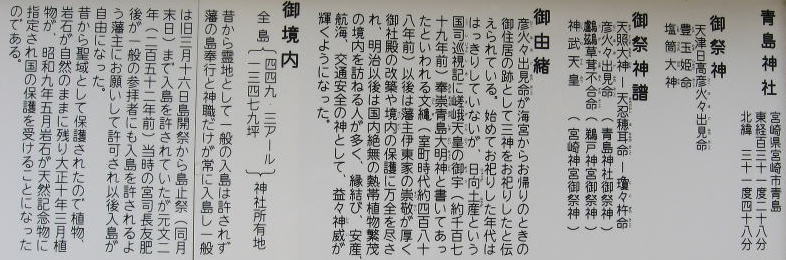 青島神社
宮崎県宮崎市青島
東経百三十一度二十八分
北緯 三十一度四十八分
御祭神
天津日高彦火々出見命
豊玉姫命
塩筒大神
御祭神譜
天照大神―天忍穂耳命―瓊々杵命
彦火々出見命（青島神社御祭神）
鸕鷀草葺不合命（鵜戸神宮御祭神）
神武天皇（宮崎神宮御祭神）
御由緒
彦火々出見命が海宮からお帰りのときの
御住居の跡として三神をお祀りしたと伝
えられている。始めてお祀りした年代は
はっきりしていないが、日向土産という
国司巡視記に嵯峨天皇の御宇（約千百七
十九年前）奉崇青島大明神と書いてあっ
たといわれる文亀（室町時代約四百八十
八年前）以後は藩主伊東家の崇敬が厚く
御社殿の改築や境内の保護に万全を尽さ
れ、明治以後は国内絶無の熱帯植物繁茂
の境内を訪ねる人が多く、縁結び、安産、
航海、交通安全の神として、益々神威が
輝くようになった。
御境内
全島｛四四九・三アール 一三四七九坪｝神社所有地
昔から霊地として一般の入島は許されず
藩の島奉行と神職だけが常に入島し一般
は旧三月十六日島開祭から島止祭（同月
末日）まで入島を許されていたが元文二
年（二百五十二年前）当時の宮司長友肥
後が一般の参拝者にも入島を許されるよ
う藩主にお願いして許可され以後入島が
自由になった。
昔から聖域として保護されたので植物、
岩石が自然のままに残り大正十年三月植
物が、昭和九年五月岩石が天然記念物に
指定され国の保護を受けることになった
のである。